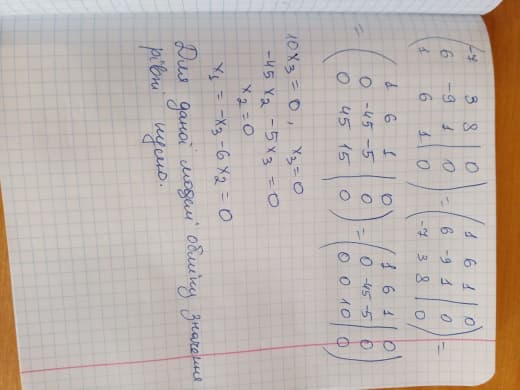 ( -7 3 8 | 0 ) = ( 1 6 1 | 0 ) =
( 6 -9 1 | 0 ) ( 6 -9 1 | 0 )
( 1 6 1 | 0 ) ( -7 3 8 | 0 )
= ( 1 6 1 | 0 ) = ( 1 6 1 | 0 )
( 0 -45 -5 | 0 ) ( 0 -45 -5 | 0 )
( 0 45 15 | 0 ) ( 0 0 10 | 0 )
10x3 = 0, x3 = 0
-45x2 - 5x3 = 0
x2 = 0
x1 = -x3 - 6x2 = 0
Для даної моделі обміну значення
рівні нулю.